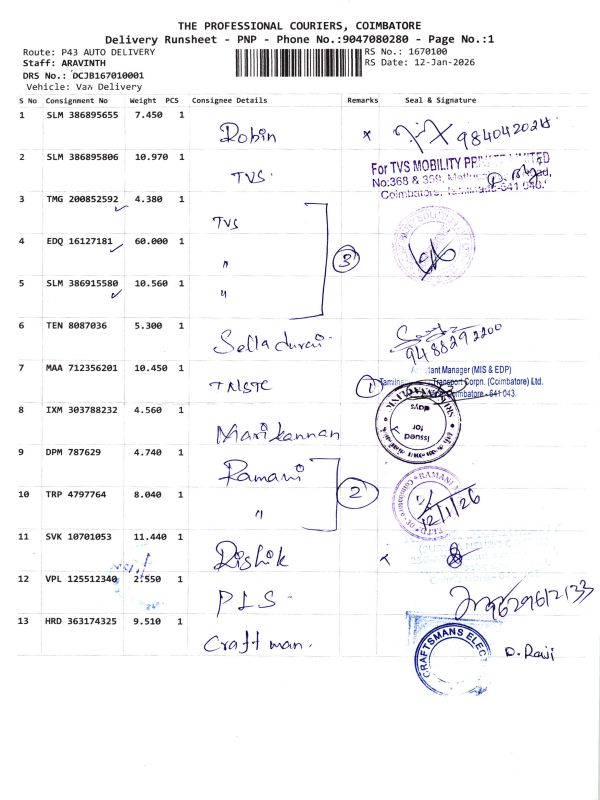 THE PROFESSIONAL COURIERS, COIMBATORE
Delivery Runsheet - PNP - Phone No.:9047080280 - Page No.:1
Route: P43 AUTO DELIVERY RS No.: 1670100
Staff: ARAVINTH RS Date: 12-Jan-2026
DRS No.: DCJB167010001
Vehicle: Van Delivery
S No Consignment No Weight PCS Consignee Details Remarks Seal & Signature
1 SLM 386895655 7.450 1 Robin x 9840420218
2 SLM 386895806 10.970 1 TVS. For TVS MOBILITY LIMITED
No:368 & 369,
Coimbatore,
3 TMG 200852592 4.380 1 TVS
4 EDQ 16127181 60.000 1 " 3
5 SLM 386915580 10.560 1 "
6 TEN 8087036 5.300 1 Selladurai. 9488292200
7 MAA 712356201 10.450 1 TNSTC 1 Manager (MIS & EDP)
Transport Corpn. (Coimbatore) Ltd.
Coimbatore - 641 043.
8 IXM 303788232 4.560 1 Marikannan
9 DPM 787629 4.740 1 Ramani RAMANI
10 TRP 4797764 8.040 1 " 2 12/1/26
11 SVK 10701053 11.440 1 Rishik x
12 VPL 125512340 2.550 1 PLS. 9629612133
13 HRD 363174325 9.510 1 Craftman. CRAFTSMANS ELECT D. Raji